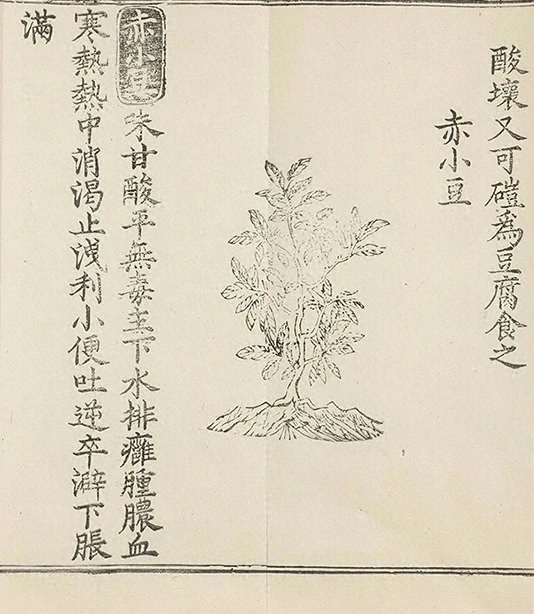 酸壞又可磑爲豆腐食之
赤小豆
赤小豆味甘酸平無毒主下水排癰腫膿血
寒熱熱中消渴止洩利小便吐逆卒澼下脹
滿